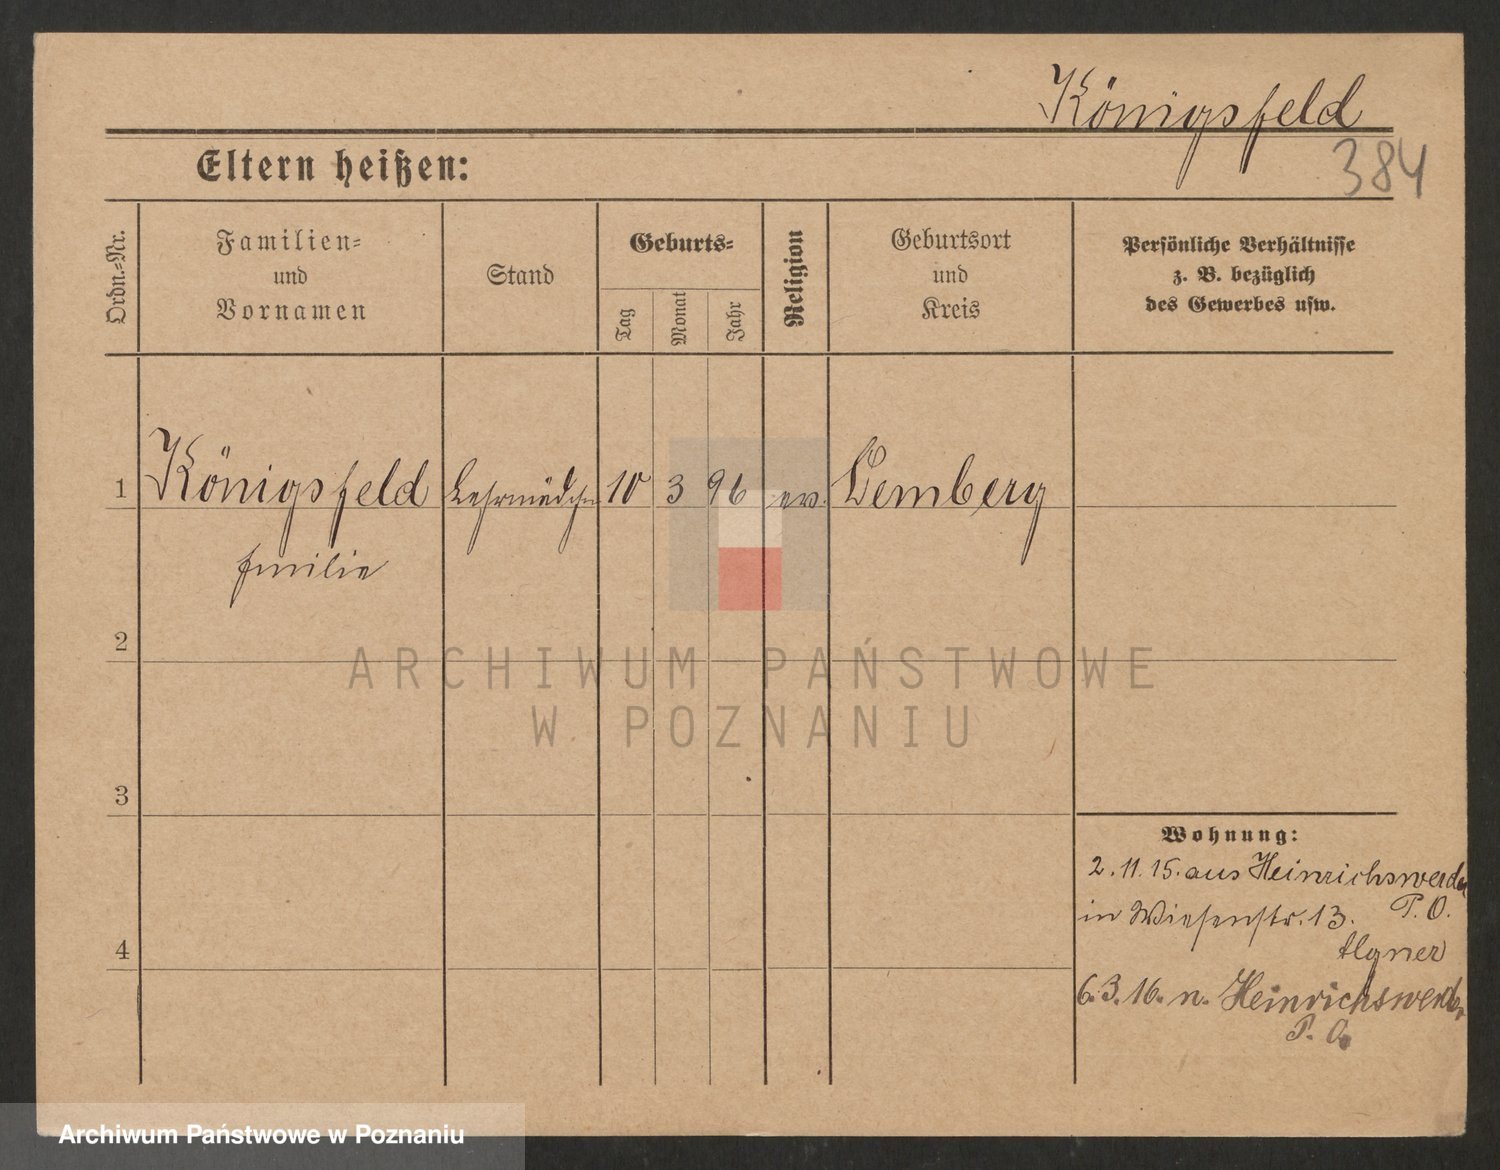 Königsfeld
384
Eltern heißen:
Ordn.=Nr.
Familien=
und
Vornamen
Stand
Geburts=
Tag
Monat
Jahr
Religion
Geburtsort
und
Kreis
Persönliche Verhältnisse
z. B. bezüglich
des Gewerbes usw.
1 Königsfeld Lehrmädchen 10 3 96 ev. Lemberg
Emilie
2
ARCHIWUM PAŃSTWOWE
W POZNANIU
3
Wohnung:
2.11.15. aus Heinrichswerder
P. O.
in Wiesenstr. 13.
4
6.3.16. n. Heinrichswerder
P. O.
Archiwum Państwowe w Poznaniu